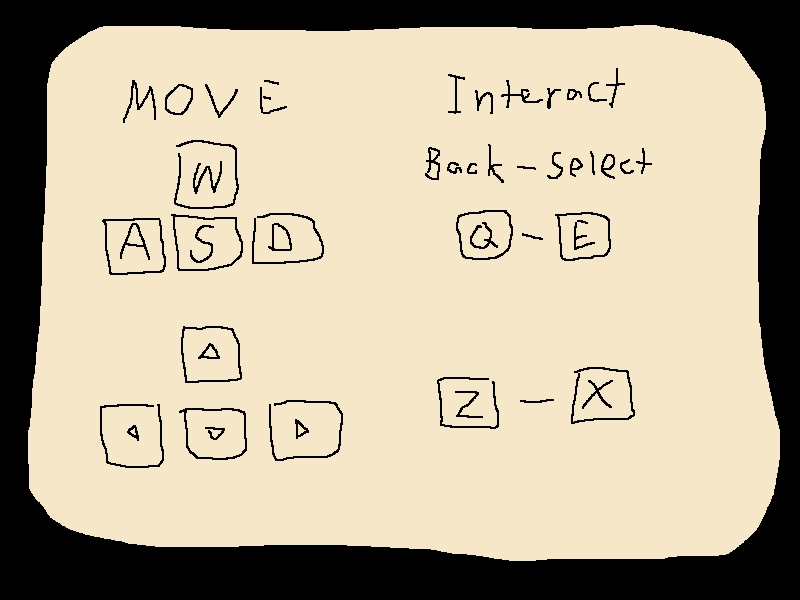 MOVE
W
A S D
Interact
Back - Select
Q - E
Z - X